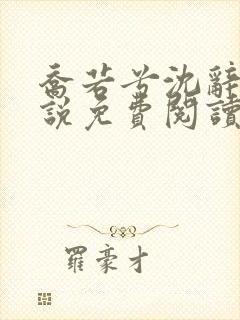 喬若兮沈辭
說免費閱讀
羅豪才